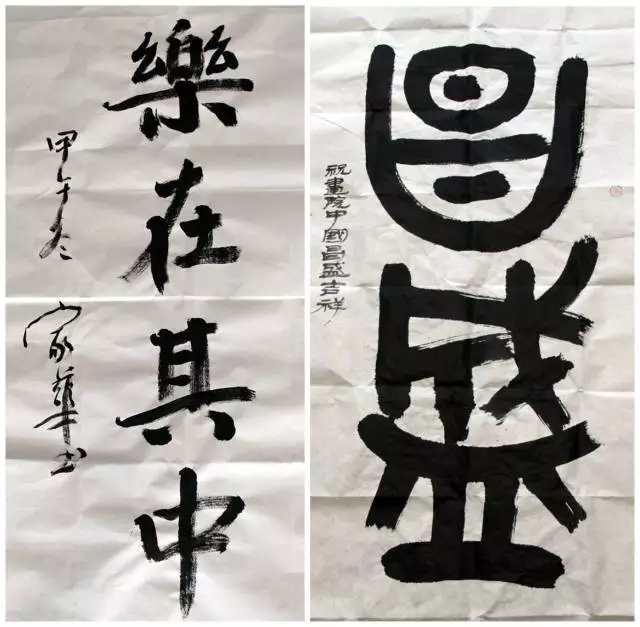 樂在其中
甲午冬
家華書
昌盛
祝畫院中國昌盛吉祥